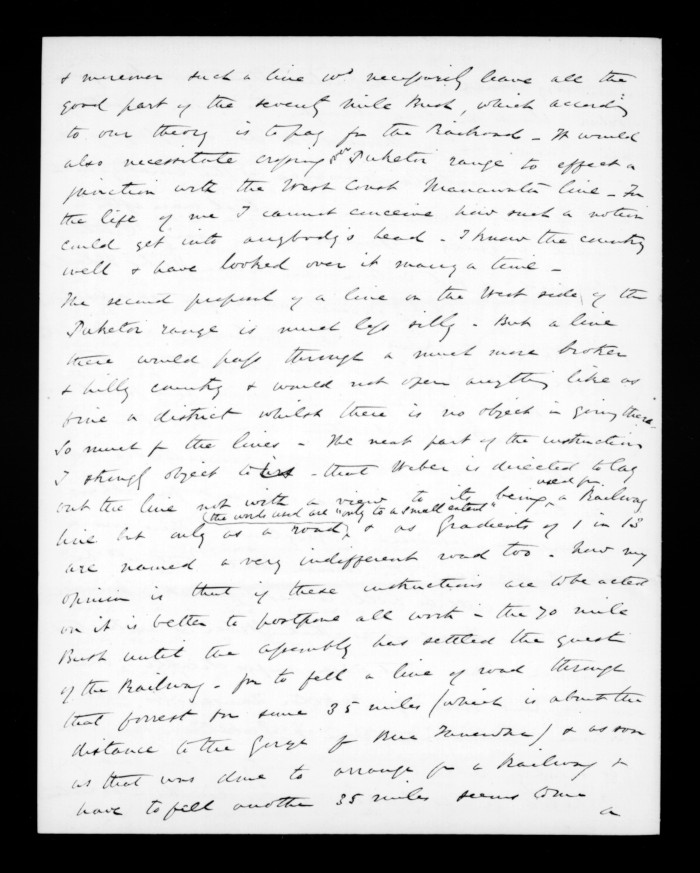 & moreover such a line wd. necessarily leave all the
good part of the seventy mile Bush, which according
to our theory is to pay for the Railroad - It would
also necessitate crossing the Puketoi range to effect a
junction with the West Coast Manawatu line - For
the life of me I cannot conceive how such a notion
could get into anybody's head - I know the country
well & have looked over it many a time -
The second proposal of a line on the West side of the
Puketoi range is much less silly - But a line
there would pass through a much more broken
& hilly country & would not open anything like as
fine a district whilst there is no object in going there -
So much for the lines - The next part of the instructions
I strongly object to is that Weber is directed to lay
used for
out the line not with a view to its being a Railway
(the words used are "only to a small extent"
line but only as a road, & as Gradients of 1 in 13
are named a very indifferent road too - Now my
opinion is that if these instructions are to be acted
on it is better to postpone all work in the 70 mile
Bush until the assembly has settled the quest
of the Railway - for to fell a line of road through
that forrest for some 35 miles (which is about the
distance to the Gorge f) & as soon
as that was done to arrange for a Railway &
have to fell another 35 miles seems to me
a